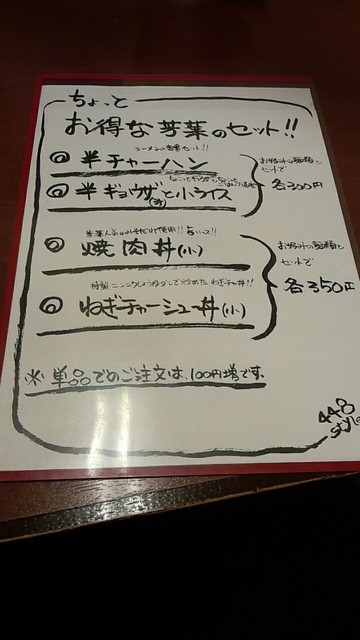 ちょっと
お得な芳葉のセット!!
ラーメンの定番セット!!
◎ 半チャーハン
◎ 半ギョウザと小ライス
お好みの麺類と
セットで
各300円
◎ 焼肉丼(小)
◎ ねぎチャーシュー丼(小)
お好みの麺類と
セットで
各350円
※ 単品でのご注文は、100円増です。
448
style